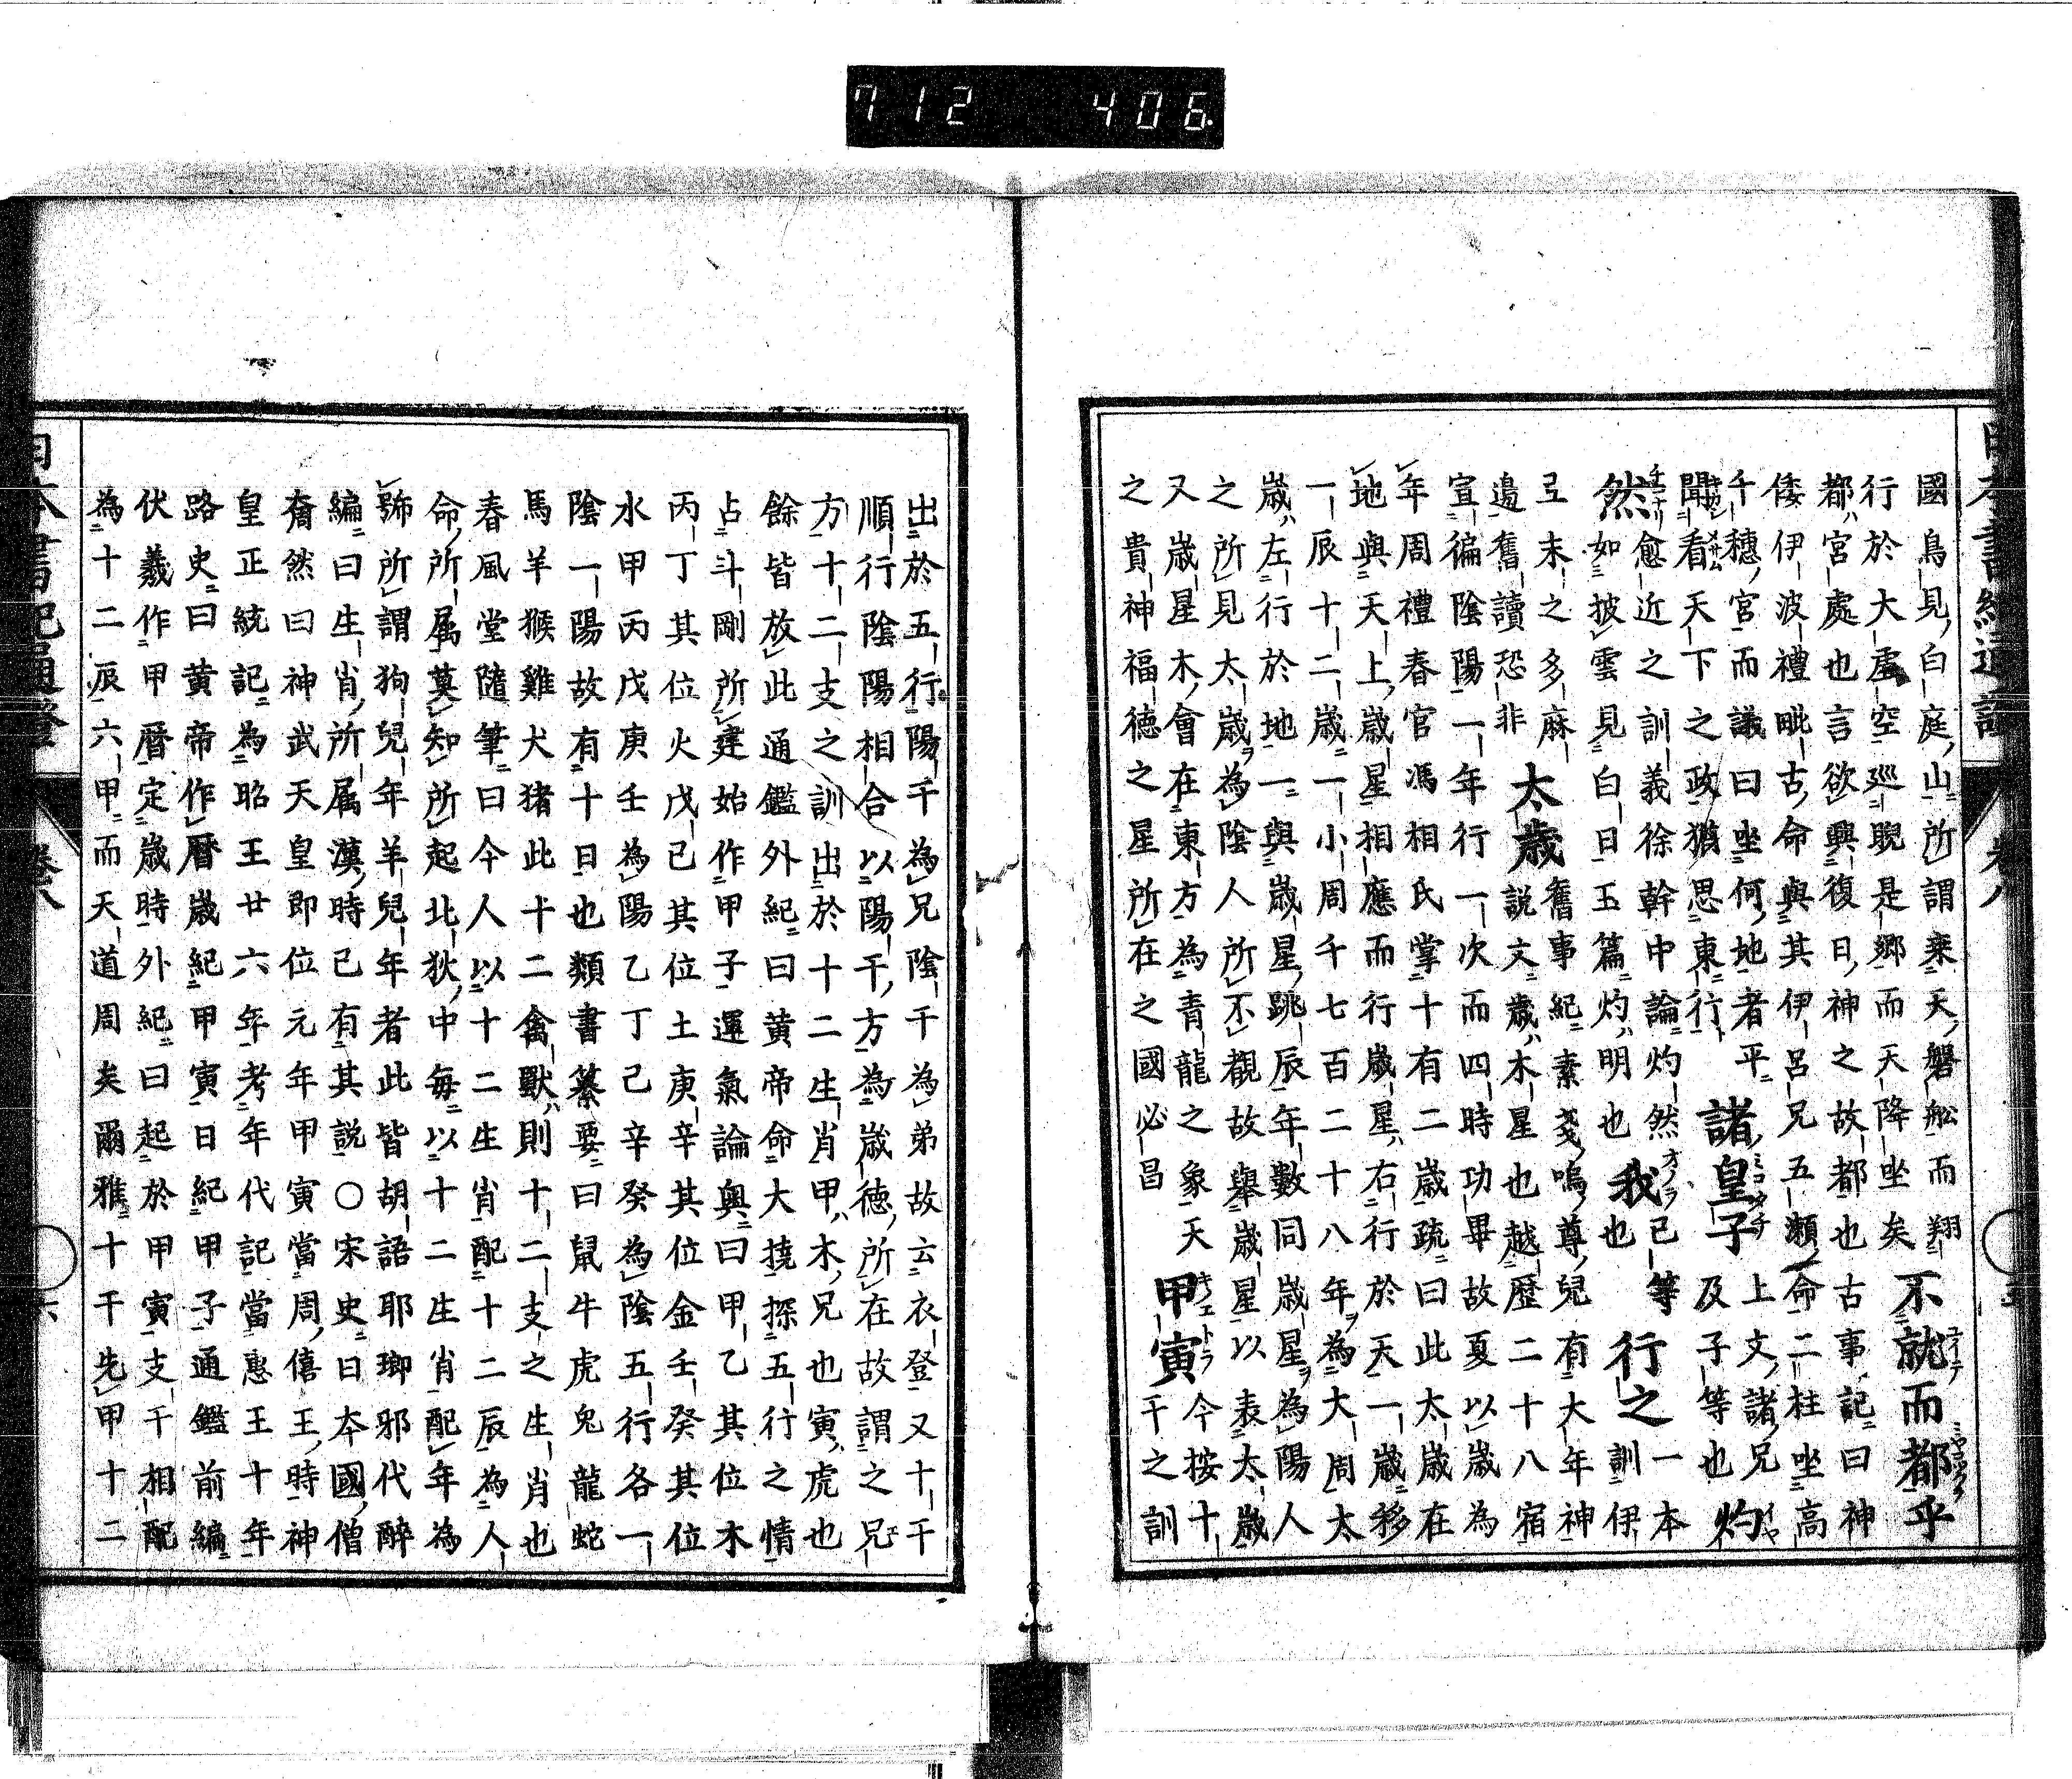 712 406
國鳥見白庭山所謂乘天磐舩而翔
行於大虛空巡睨是郷而天降坐矣
不就而都乎
都宮處也言欲興復日神之故都也古事記曰神
倭伊波禮毗古命與其伊呂兄五瀬命二柱坐高
千穗宮而議曰坐何地者平
聞看天下之政猶思東行
諸皇子
上文諸兄
及子等也
灼
然
愈近之訓義徐幹中論灼然
如披雲見白日玉篇灼明也
我
已等
也
行之
一本
訓伊
弖末之多麻
邉舊讀恐非
太歳
舊事紀素戔嗚尊兒有大年神
説文歳木星也越歴二十八宿
宣徧陰陽一年行一次而四時功畢故夏以歳為
年周禮春官馮相氏掌十有二歳疏曰此太歳在
地與天上歳星相應而行歳星右行於天一歳移
一辰十二歳一小周千七百二十八年為大周太
歳左行於地一與歳星跳辰年數同歳星為陽人
之所見太歳為陰人所不覩故舉歳星以表太歳
又歳星木會在東方為青龍之象天
之貴神福德之星所在之國必昌
甲寅
今按十
干之訓
出於五行陽干為兄陰干為弟故云衣登又十干
順行陰陽相合以陽干方為歳德所在故謂之兄
方十二支之訓出於十二生肖甲木兄也寅虎也
餘皆放此通鑑外紀曰黄帝命大撓探五行之情
占斗剛所建始作甲子運氣論奧曰甲乙其位木
丙丁其位火戊己其位土庚辛其位金壬癸其位
水甲丙戊庚壬為陽乙丁己辛癸為陰五行各一
陰一陽故有十日也類書纂要曰鼠牛虎兔龍蛇
馬羊猴雞犬猪此十二禽獸則十二支之生肖也
春風堂隨筆曰今人以十二生肖配十二辰為人
命所属莫知所起北狄中每以十二生肖配年為
號所謂狗兒年羊兒年者此皆胡語耶瑯邪代醉
編曰生肖所属漢時已有其説○宋史日本國僧
奝然曰神武天皇即位元年甲寅當周僖王時神
皇正統記為昭王廿六年考年代記當惠王十年
路史曰黄帝作曆歳紀甲寅日紀甲子通鑑前編
伏羲作甲曆定歳時外紀曰起於甲寅支干相配
為十二辰六甲而天道周矣爾雅十干先甲十二